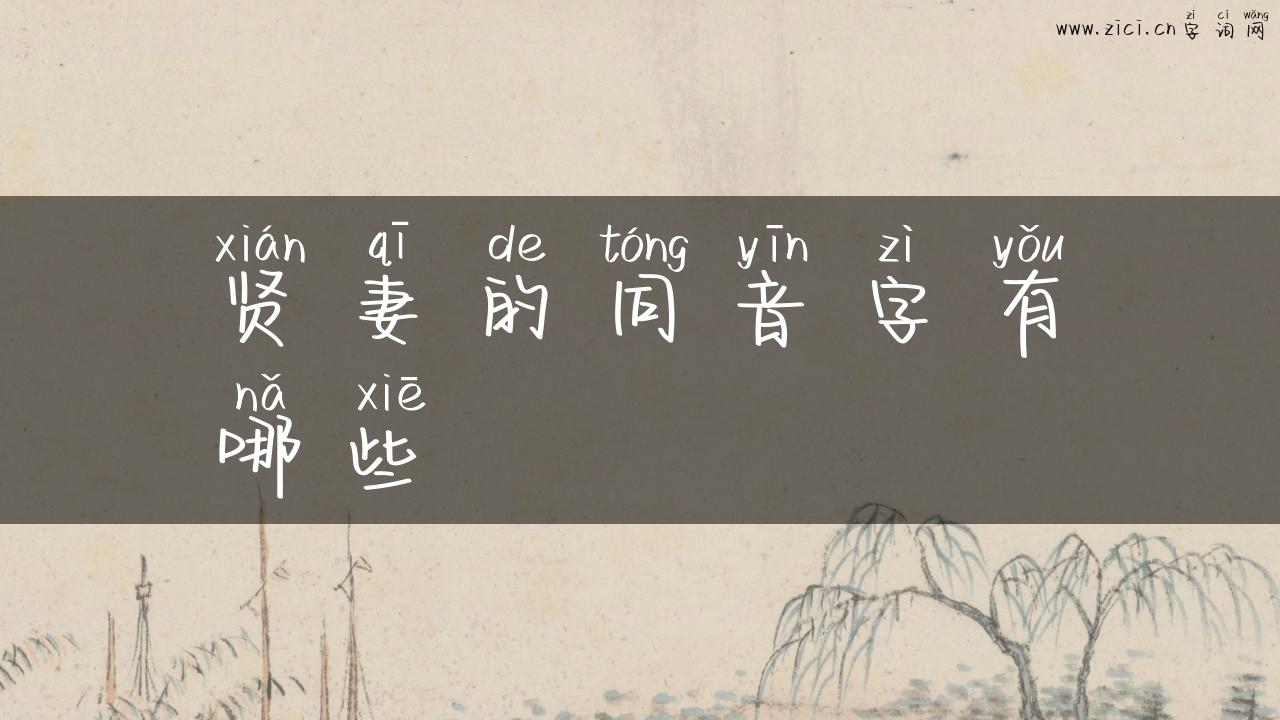 zì cí wǎng
www.zici.cn 字 词 网
xián qī de tóng yīn zì yǒu
贤 妻 的 同 音 字 有
nǎ xiē
哪 些